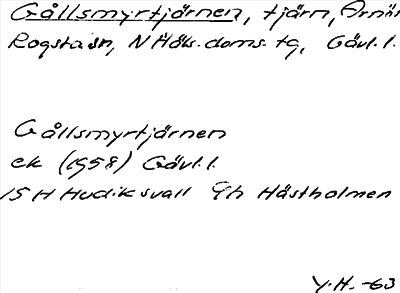 Gållsmyrtjärnen, tjärn, Arnön
Rogsta sn, N Häls. doms. tg, Gävl. l.
Gållsmyrtjärnen
ek (1958) Gävl. l.
15 H Hudiksvall 9h Hästholmen
Y.H. -63